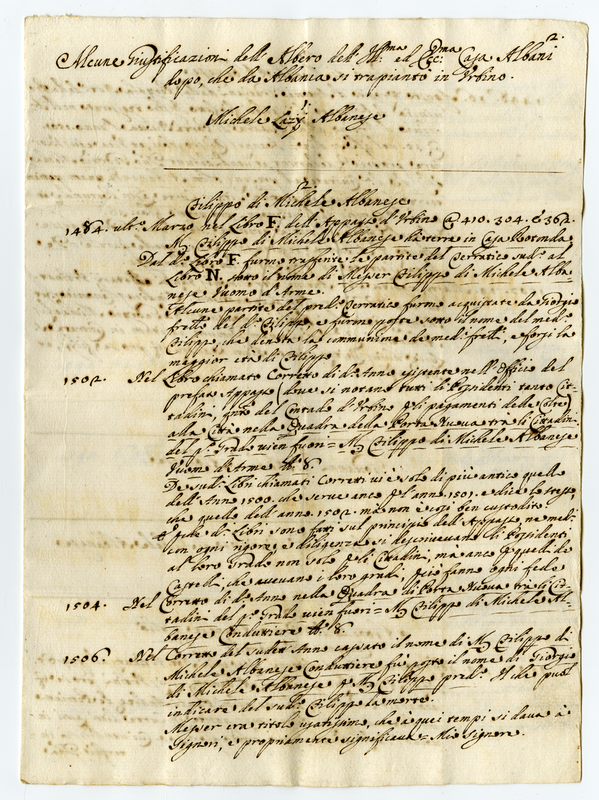 2.
Alcune Giustificazioni dell'Albero dell' Ill:ma ed Ecc:ma Casa Albani
dopo, che da Albania si trapiantò in Urbino.
1.
Michele Lazij Albanese
2.
Filippo di Michele Albanese
1484. ult.o Marzo nel Libro F. dell'Appasso d'Urbino @ 410. 304. e 362.
M. Filippo di Michele Albanese ha terra in Casa Rotonda
Dal d.o Libro F. furno trasferite le partite del Terratico sud.o al
Libro N. sotto il nome di Messer Filippo di Michele Alba-
nese Vuomo d'Arme.
Alcune partite del pred.o Terratico furno acquistate da Giorgio
frat.llo del d.o Filippo, e furno poste sotto il nome del med.o
Filippo, che denota la communione de med.i frat.lli, e forsi la
maggior età di Filippo
1502. Nel Libro chiamato Corretto di d.o Anno esistente nell'Officio del
prefato Appasso (dove si notano tutti li Possidenti tanto Cit-
tadini, q.nto del Contado d'Urbino p li pagamenti delle Colte)
alla Città nella Quadra della Porta Nuova trà li Cittadini
del p.o Grado vien fuori = M. Filippo di Michele Albanese
Vuomo d'Arme 8.
De sud.i Libri chiamati Corretti vi è solo di più antico quello
dell'Anno 1500. che serve anco p l'anno 1501. e dice lo stesso,
che quello dell'anno 1502. ma non è così ben custodito.
E p che d.i Libri sono fatti sul principio dell'Appasso, ne med.i
con ogni rigore, e diligenza si descrivevano li Possidenti
al loro Grado non solo p li Cittadini, ma anco p quelli de
Castelli, che avevano i loro gradi, p ciò fanno ogni fede
1504. Nel Corretto di d.o Anno nella Quadra di Porta Nuova trà li Cit-
tadini del p.o Grado vien fuori = M. Filippo di Michele Al-
banese Conduttiere 8.
1506. Nel Corretto del sudett.o Anno cassato il nome di M. Filippo di
Michele Albanese Conduttiere fù posto il nome di Giorgio
di Michele Albanese p M. Filippo pred.o Il che può
indicare del sud.o Filippo la morte.
Messer era titolo usatissimo, che à quei tempi si dava à
Signori, e propriamente significava = Mio Signore.